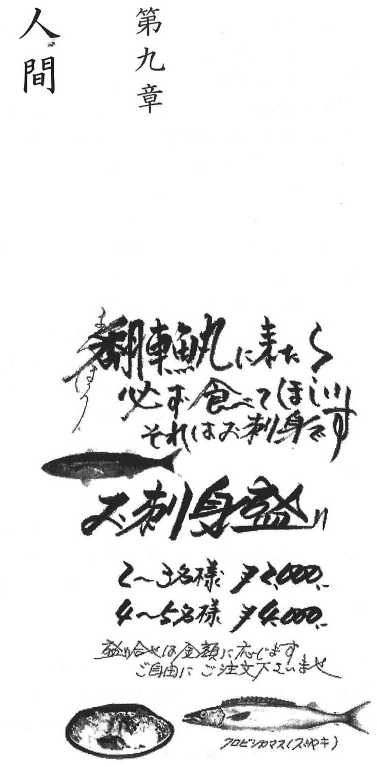 第九章
人間
まんぼう
翻車魚丸に来たら
必ず食べてほしい
それはお刺身です
お刺身盛り
2〜3名様 ¥2,000.-
4〜5名様 ¥4,000.-
盛り合せは金額に応じます
ご自由にご注文下さいませ
クロシビカマス(スミヤキ)